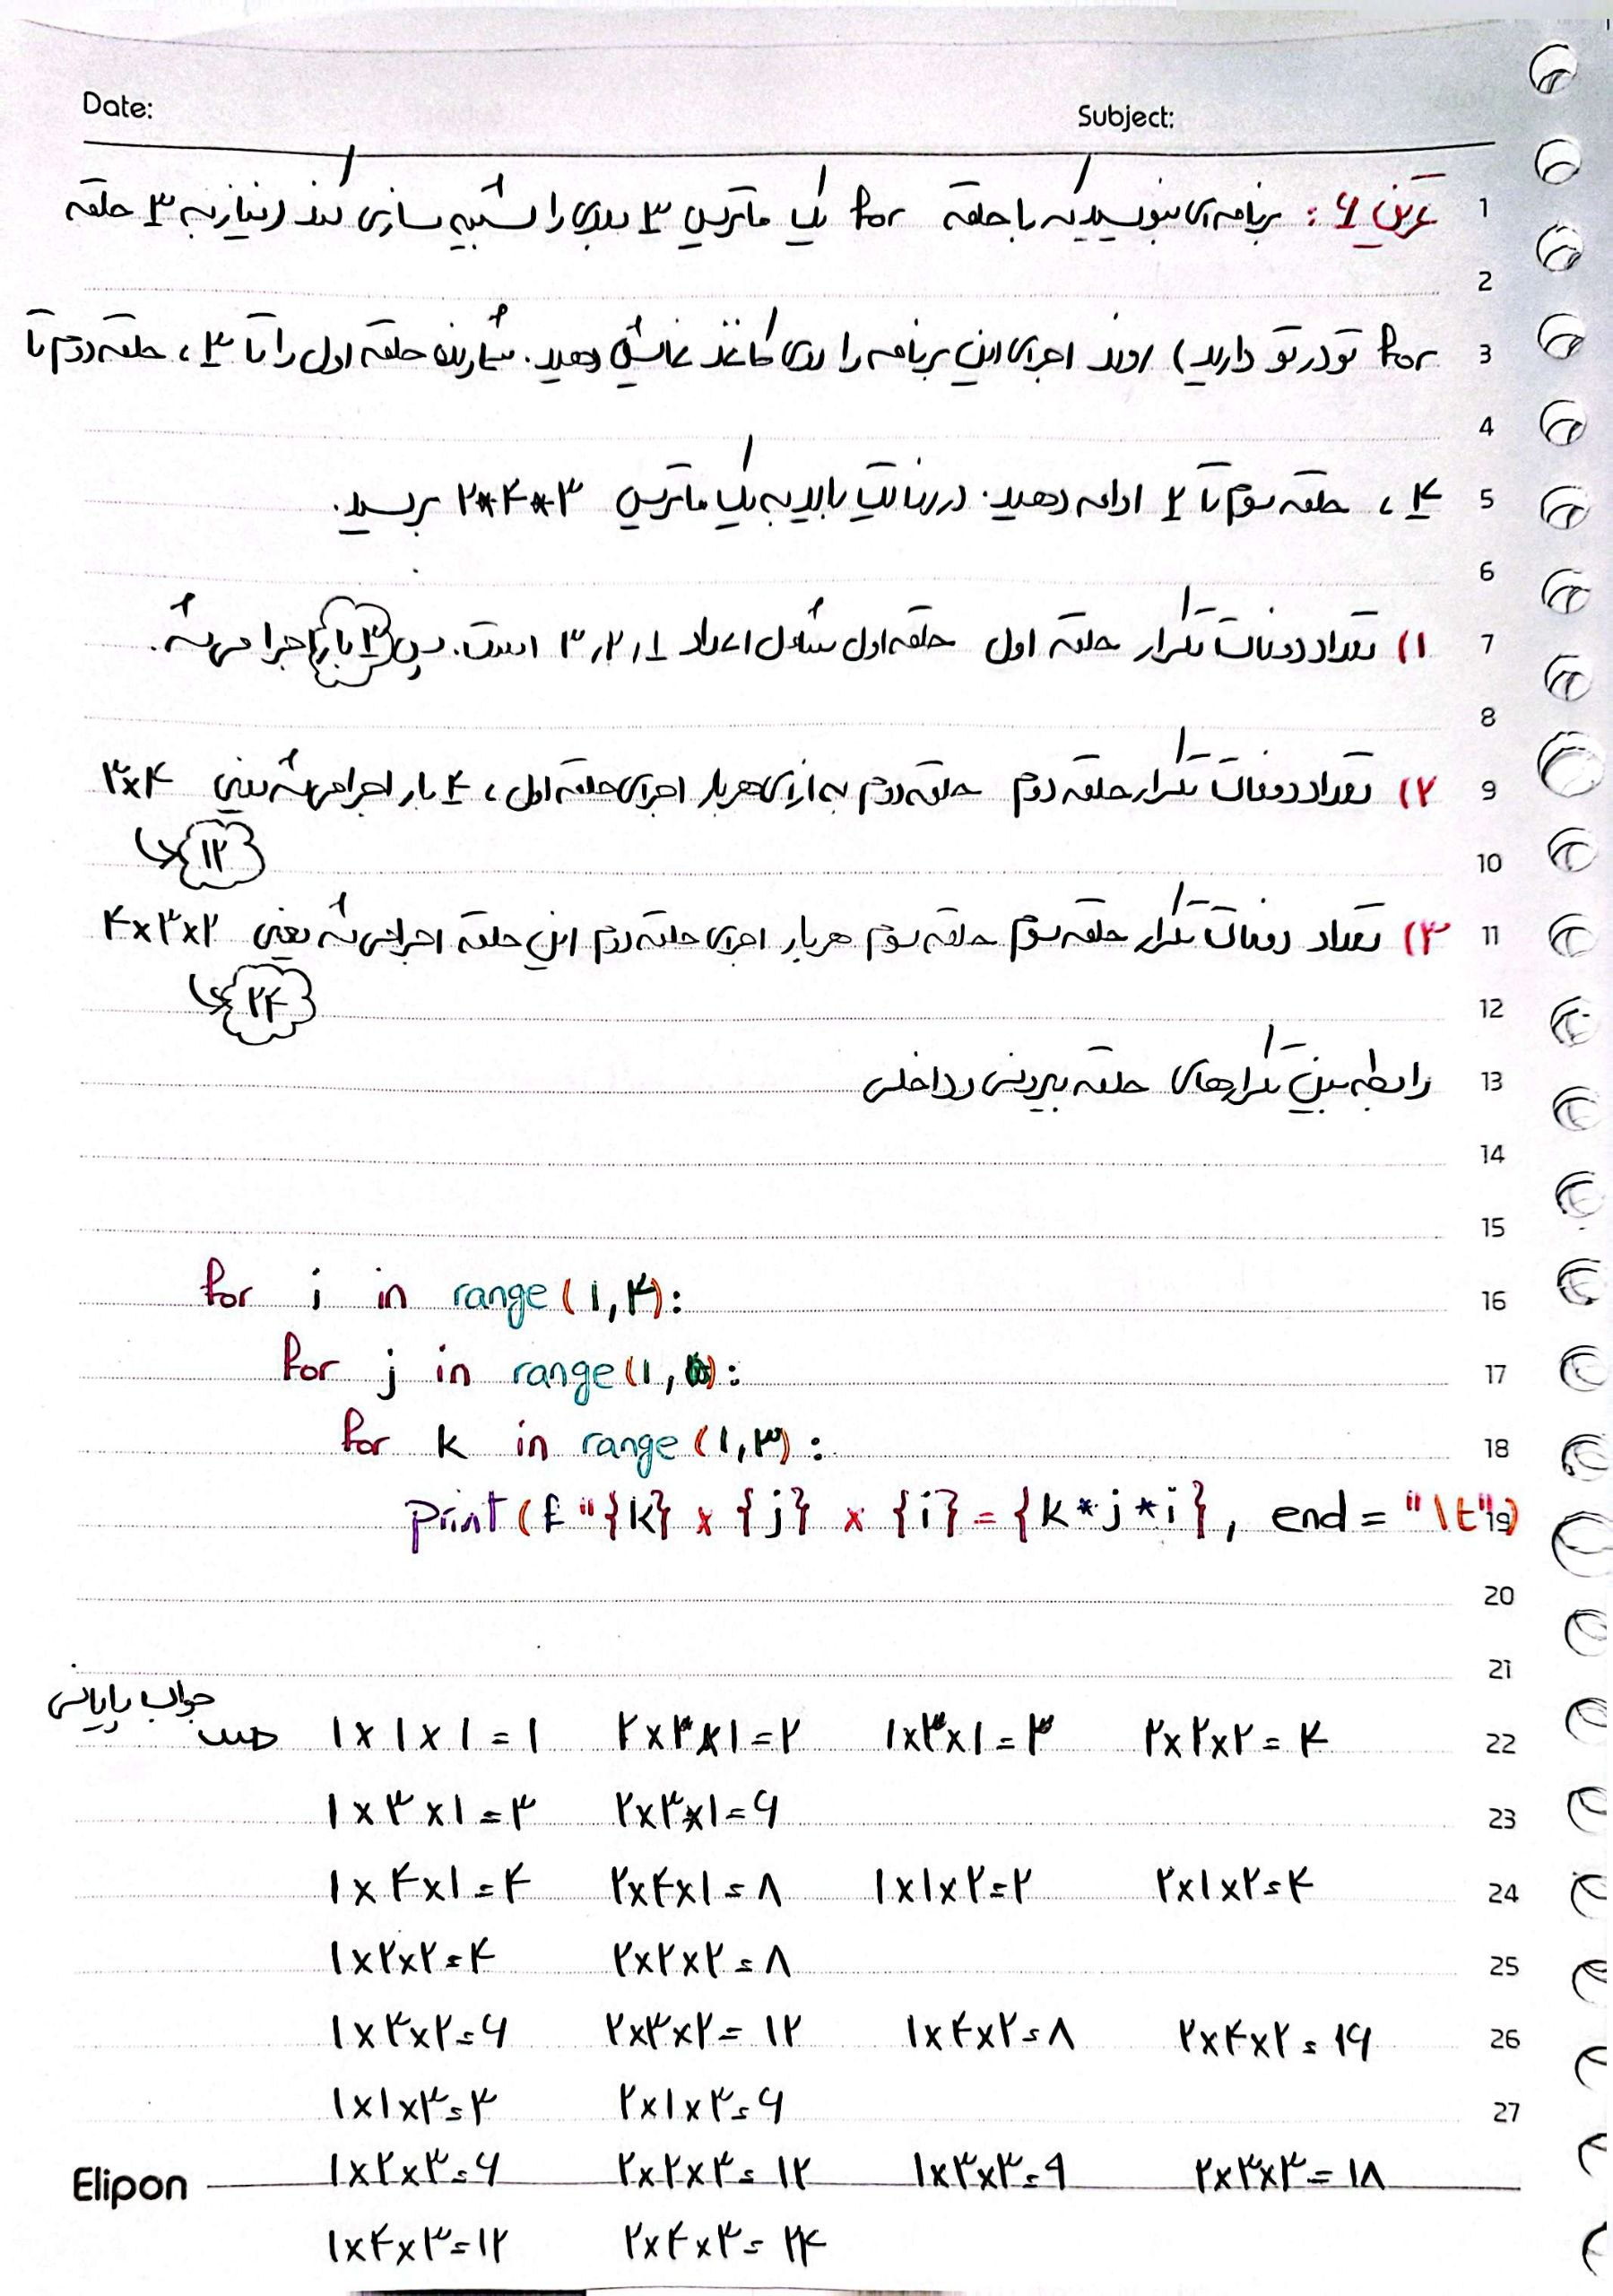 Date:
Subject:
1 تمرین ۶ : برنامه‌ای بنویسید که با حلقه for یک ماتریس ۳ بعدی را شبیه سازی کند (نیاز به ۳ حلقه
2
3 for تو در تو دارید) روند اجرای این برنامه را روی کاغذ نمایش دهید. شمارنده حلقه اول را تا ۳ ، حلقه دوم تا
4
5 ۴ ، حلقه سوم تا ۲ ادامه دهید. در نهایت باید به یک ماتریس ۳*۴*۲ برسید.
6
7 ۱) تعداد دفعات تکرار حلقه اول حلقه اول شامل اعداد ۱,۲,۳ است. پس ۳ بار اجرا می‌شه.
8
9 ۲) تعداد دفعات تکرار حلقه دوم حلقه دوم به ازای هر بار اجرای حلقه اول ، ۴ بار اجرا می‌شه یعنی ۳x۴
10 ۱۲
11 ۳) تعداد دفعات تکرار حلقه سوم حلقه سوم هر بار اجرای حلقه دوم این حلقه اجرا می‌شه یعنی ۴x۳x۲
12 ۲۴
13 رابطه بین تکرارهای حلقه بیرونی و داخلی
14
15
16 for i in range (۱,۴):
17 for j in range (۱,۵):
18 for k in range (۱,۳) :
19 print (f "{k} x {j} x {i} = {k*j*i}, end = "\t")
20
21
جواب پایانی
22 ۱x۱x۱=۱ ۲x۲x۱=۲ ۱x۳x۱=۳ ۲x۲x۲=۴
23 ۱x۳x۱=۳ ۲x۳x۱=۶
24 ۱x۴x۱=۴ ۲x۴x۱=۸ ۱x۱x۲=۲ ۲x۱x۲=۴
25 ۱x۲x۲=۴ ۲x۲x۲=۸
26 ۱x۳x۲=۶ ۲x۳x۲=۱۲ ۱x۴x۲=۸ ۲x۴x۲=۱۶
27 ۱x۱x۳=۳ ۲x۱x۳=۶
Elipon ۱x۲x۳=۶ ۲x۲x۳=۱۲ ۱x۳x۳=۹ ۲x۳x۳=۱۸
۱x۴x۳=۱۲ ۲x۴x۳=۲۴